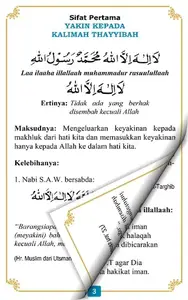 Sifat Pertama
YAKIN KEPADA
KALIMAH THAYYIBAH
لَا إِلٰهَ إِلَّا اللهُ مُحَمَّدٌ رَسُوْلُ اللهِ
Laa ilaaha illallaah muhammadur rasuulullaah
لَا إِلٰهَ إِلَّا اللهُ
Ertinya: Tidak ada yang berhak
disembah kecuali Allah
Maksudnya: Mengeluarkan keyakinan kepada
makhluk dari hati kita dan memasukkan keyakinan
hanya kepada Allah ke dalam hati kita.
Kelebihanya:
1. Nabi S.A.W. bersabda:
Targhib
illallaah:
"Barangsiapa
(meyakini) bah
kecuali Allah, m
halaqah
dibicarakan
(Hr. Muslim dari Utsman
T agar Dia
hakikat iman.
3